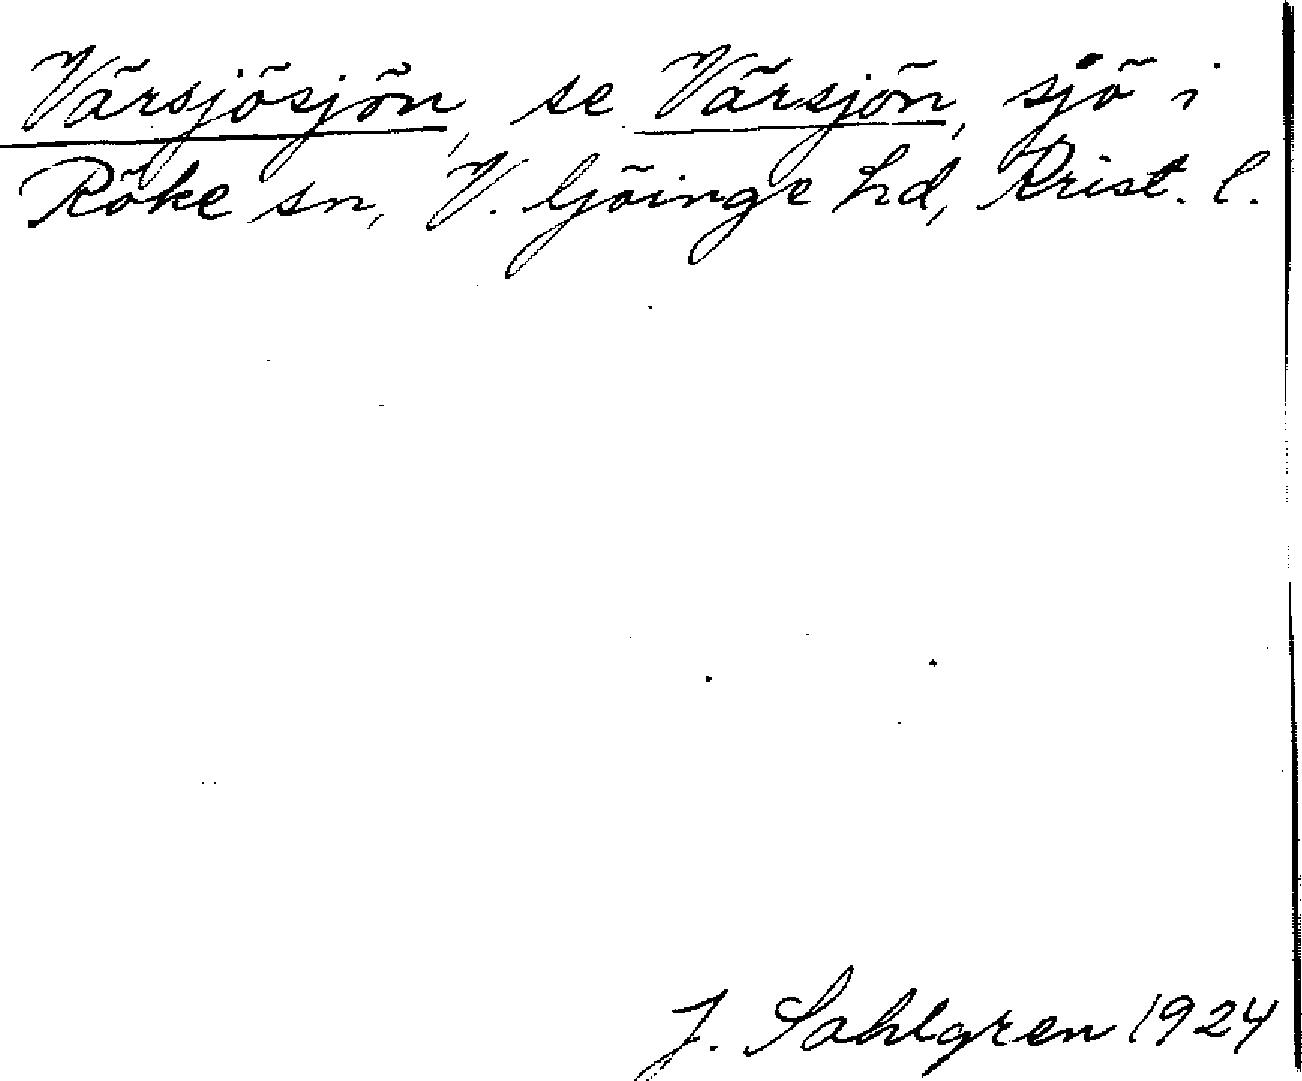 Värsjösjön, se Värsjön, sjö i
Röke sn, V. Göinge hd, Krist. l.
J. Sahlgren 1924